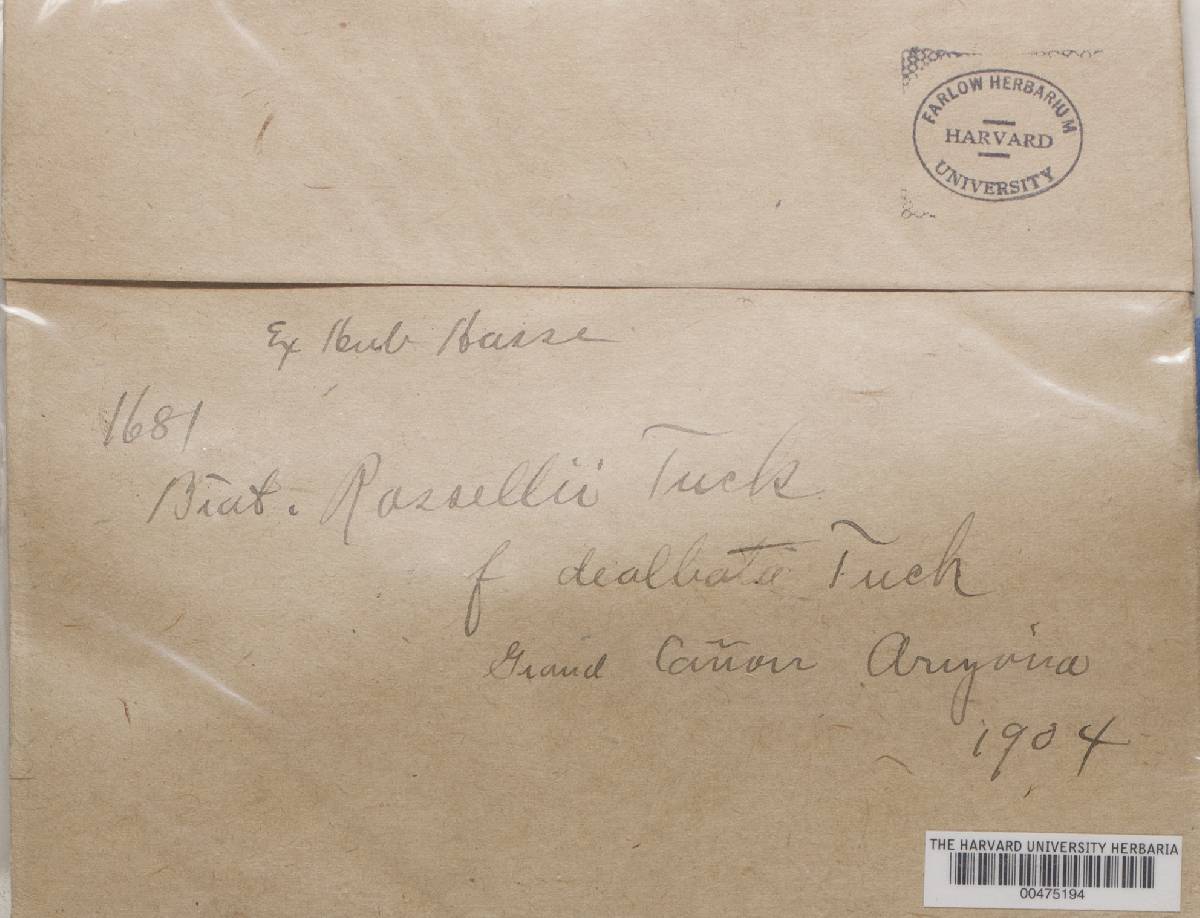 FARLOW HERBARIUM
HARVARD
UNIVERSITY
Ex Herb Hasse
1681
Biat. Russellii Tuck
f dealbata Tuck
Grand Cañon Arizona
1904
THE HARVARD UNIVERSITY HERBARIA
00475194